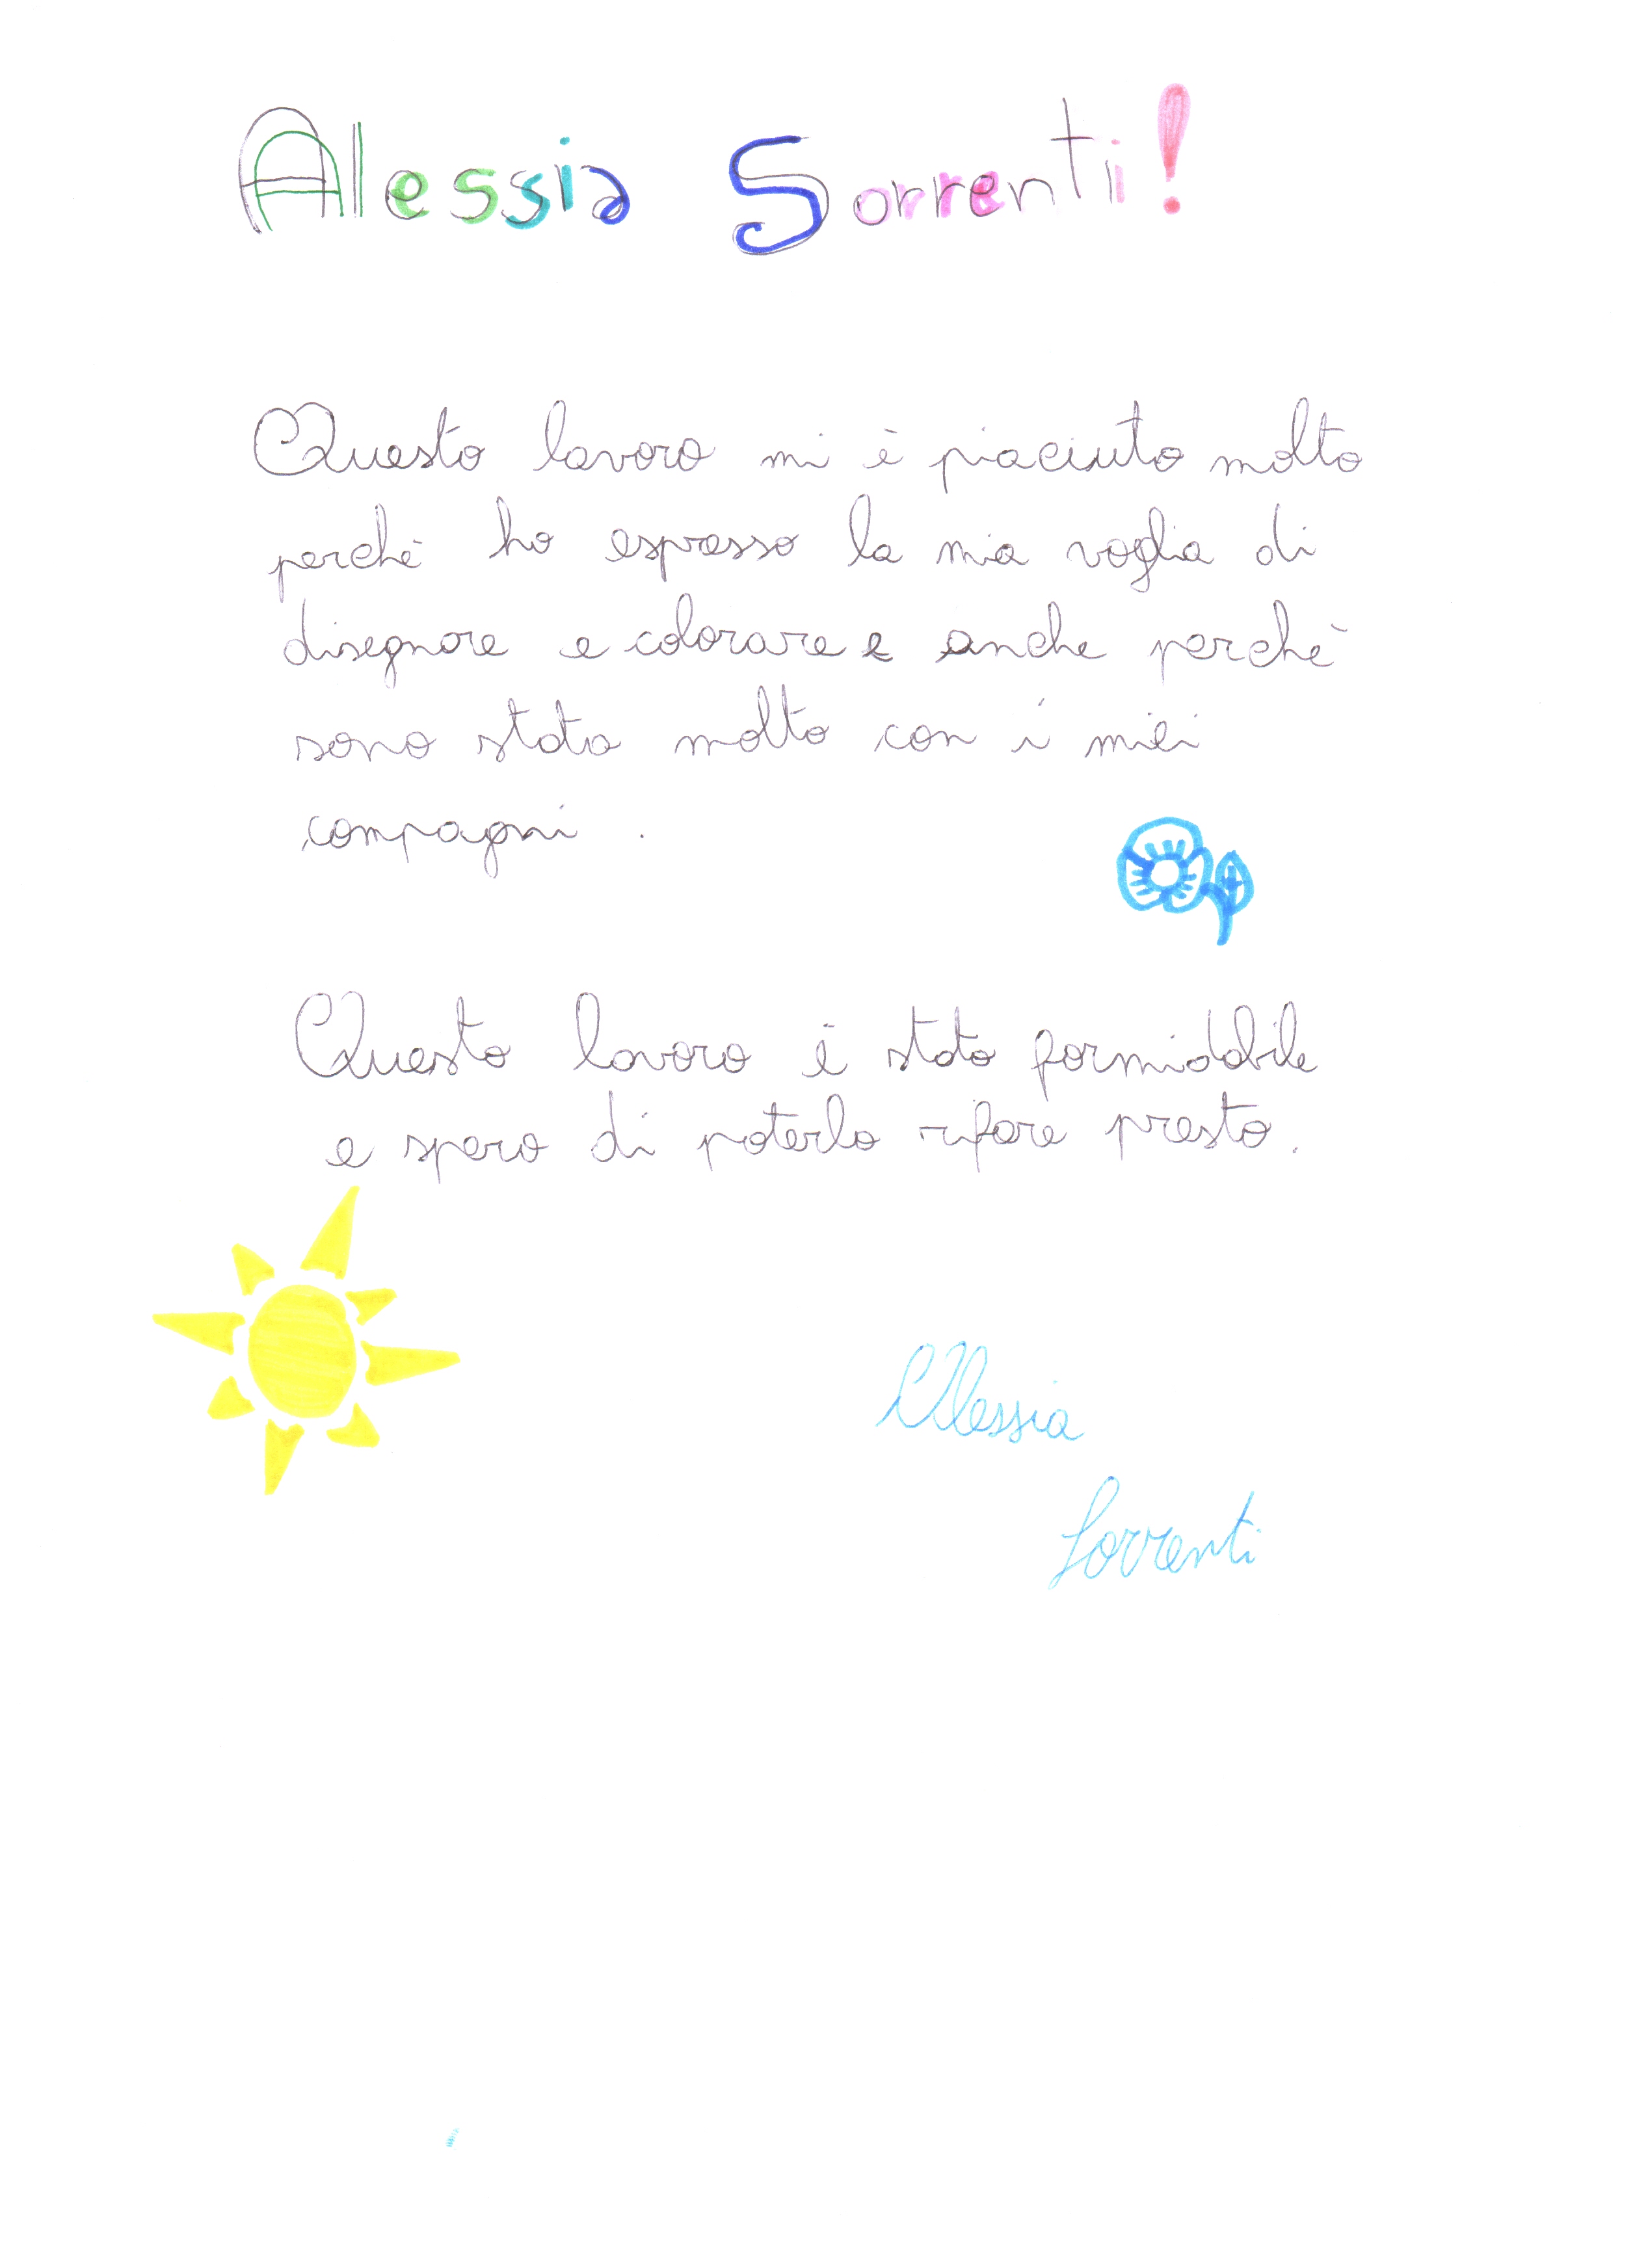 Alessia Sorrenti!
Questo lavoro mi è piaciuto molto
perchè ho espresso la mia voglia di
disegnare e colorare e anche perchè
sono stata molto con i miei
compagni.
Questo lavoro è stato formidabile
e spero di poterlo rifare presto.
Alessia
Sorrenti